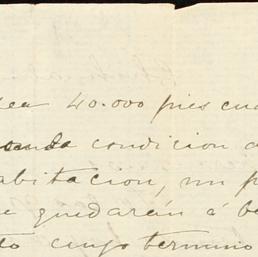 ea 40.000 pies cu
condicion
abitacion, un p
e quedarán á be
to cuyo termino